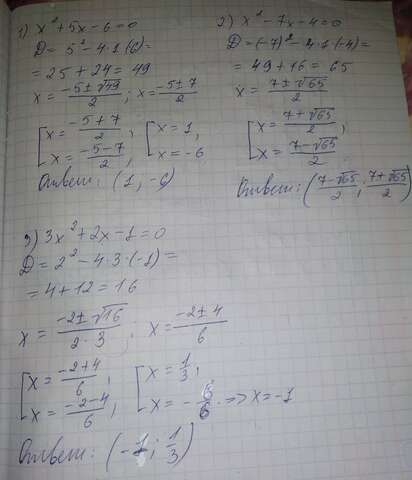 1) x² + 5x - 6 = 0
D = 5² - 4·1(6) =
= 25 + 24 = 49
x = (-5 ± √49)/2 ; x = (-5 ± 7)/2
[ x = (-5 + 7)/2 ; [ x = 1,
x = (-5 - 7)/2 ; x = -6
Ответ: (1, -6)
2) x² - 7x - 4 = 0
D = (-7)² - 4·1(-4) =
= 49 + 16 = 65
x = (7 ± √65)/2
[ x = (7 + √65)/2 ;
x = (7 - √65)/2
Ответ: ((7 - √65)/2 ; (7 + √65)/2)
3) 3x² + 2x - 1 = 0
D = 2² - 4·3·(-1) =
= 4 + 12 = 16
x = (-2 ± √16)/(2·3) ; x = (-2 ± 4)/6
[ x = (-2 + 4)/6 ; [ x = 1/3 ;
x = (-2 - 4)/6 ; x = -6/6 => x = -1
Ответ: (-1; 1/3)